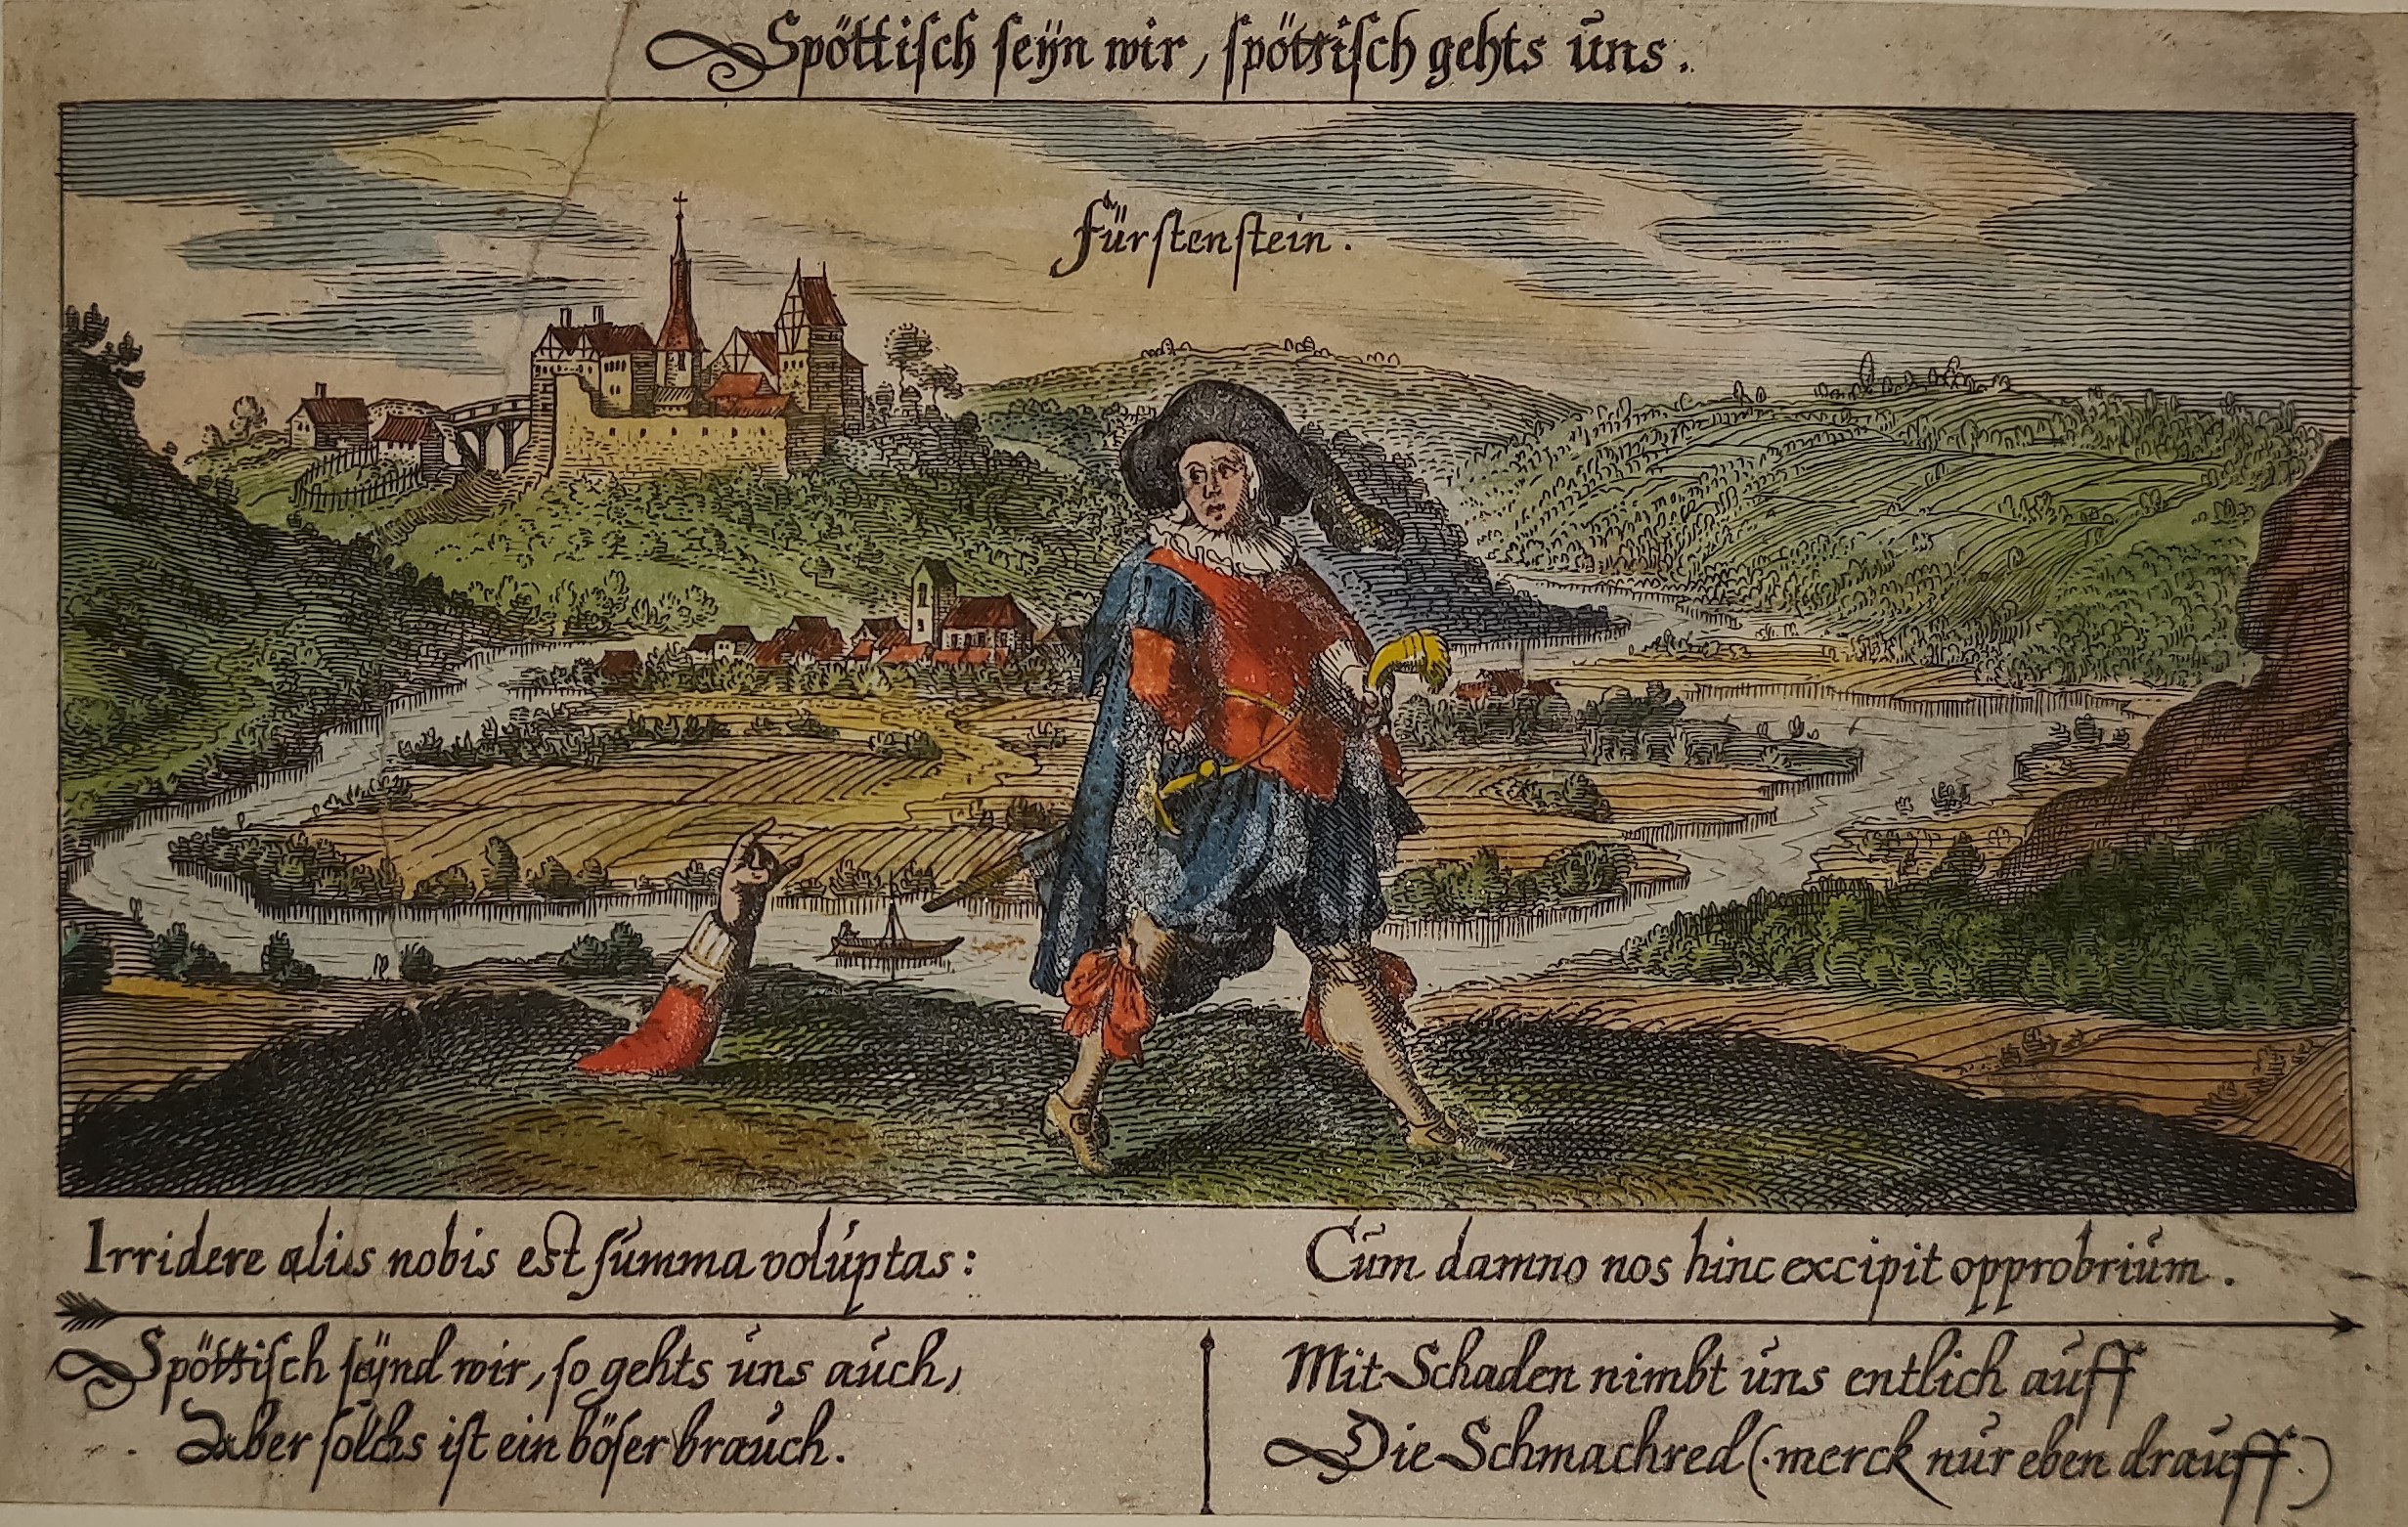 Spöttisch seÿn wir, spöttisch gehts uns.
Fürstenstein.
Irridere aliis nobis est summa voluptas:
Cum damno nos hinc excipit opprobrium.
Spöttisch seÿnd wir, so gehts uns auch,
Aber solchs ist ein böser brauch.
Mit Schaden nimbt uns entlich auff
Die Schmachred (merck nur eben drauff.)